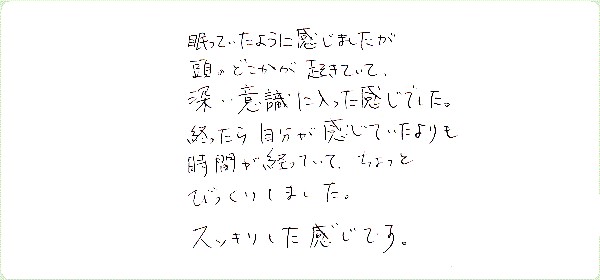 眠っていたように感じましたが
頭のどこかが起きていて、
深い意識に入った感じでした。
終ったら自分が感じていたよりも
時間が経っていて、ちょっと
びっくりしました。
スッキリした感じです。